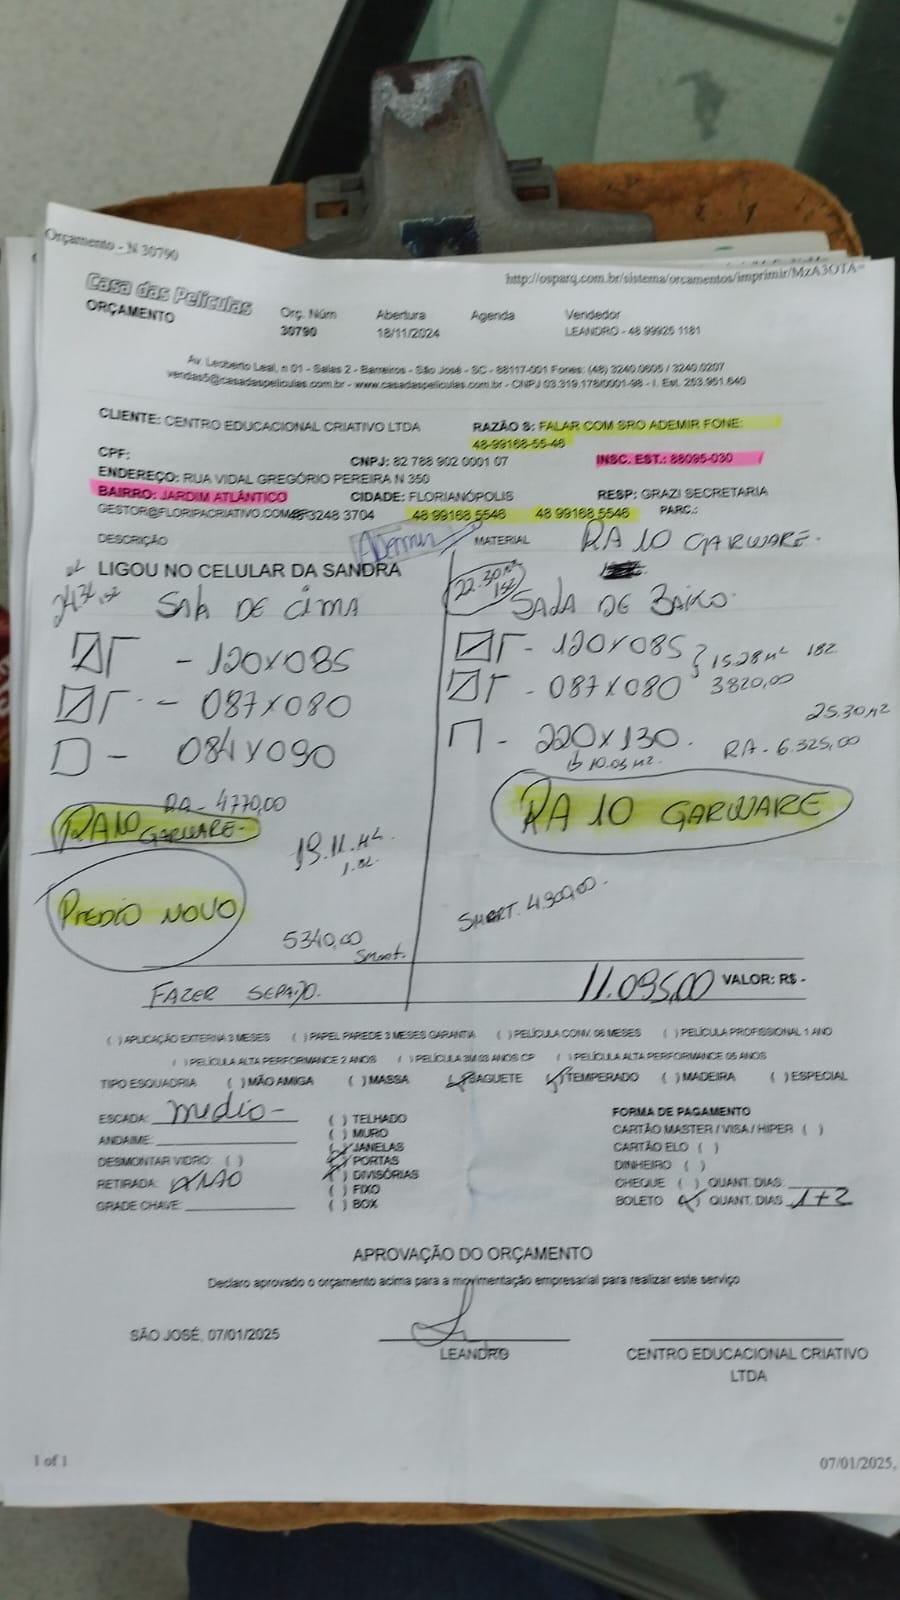 Orçamento - N 30790
http://osparq.com.br/sistema/orcamentos/imprimir/MzA3OTA=
Casa das Películas
ORÇAMENTO
Orç. Núm Abertura Agenda Vendedor
30790 18/11/2024 LEANDRO - 48 99925 1181
Av. Leoberto Leal, n 01 - Salas 2 - Barreiros - São José - SC - 88117-001 Fones: (48) 3240.0605 / 3240.0207
vendas5@casadaspeliculas.com.br - www.casadaspeliculas.com.br - CNPJ 03.319.178/0001-98 - I. Est. 253.951.640
CLIENTE: CENTRO EDUCACIONAL CRIATIVO LTDA RAZÃO S: FALAR COM SRO ADEMIR FONE:
48-99168-55-46
CPF: CNPJ: 82 788 902 0001 07 INSC. EST.: 88095-030
ENDEREÇO: RUA VIDAL GREGÓRIO PEREIRA N 350
BAIRRO: JARDIM ATLÂNTICO CIDADE: FLORIANÓPOLIS RESP: GRAZI SECRETARIA
GESTOR@FLORIPACRIATIVO.COM 48 3248 3704 48 99168 5546 48 99168 5546 PARC.:
DESCRIÇÃO Ademir MATERIAL RA 10 GARWARE.
LIGOU NO CELULAR DA SANDRA
SALA DE CIMA
22.30 m²
SALA DE BAIXO
- 120X085
- 120X085 15.28 m² 182
- 087X080
- 087X080 3820,00
25.30 m²
- 084X090
- 220X130. RA - 6.325,00
10.03 m².
RA - 4770,00
RA10 GARWARE
RA 10 GARWARE
PREDIO NOVO
SMART. 4.900,00.
5340,00
Smart.
FAZER SEPA
11.095,00 VALOR: R$ -
( ) APLICAÇÃO EXTERNA 3 MESES ( ) PAPEL PAREDE 3 MESES GARANTIA ( ) PELÍCULA CONV. 06 MESES ( ) PELÍCULA PROFISSIONAL 1 ANO
( ) PELÍCULA ALTA PERFORMANCE 2 ANOS ( ) PELÍCULA 3M 03 ANOS CP ( ) PELÍCULA ALTA PERFORMANCE 05 ANOS
TIPO ESQUADRIA ( ) MÃO AMIGA ( ) MASSA (X) BAGUETE (X) TEMPERADO ( ) MADEIRA ( ) ESPECIAL
ESCADA: medio -
ANDAIME:
DESMONTAR VIDRO: ( )
RETIRADA: NÃO
GRADE CHAVE:
( ) TELHADO
( ) MURO
(X) JANELAS
(X) PORTAS
(X) DIVISÓRIAS
( ) FIXO
( ) BOX
FORMA DE PAGAMENTO
CARTÃO MASTER / VISA / HIPER ( )
CARTÃO ELO ( )
DINHEIRO ( )
CHEQUE ( ) QUANT. DIAS:
BOLETO (X) QUANT. DIAS 1+2
APROVAÇÃO DO ORÇAMENTO
Declaro aprovado o orçamento acima para a movimentação empresarial para realizar este serviço
SÃO JOSÉ, 07/01/2025
LEANDRO
CENTRO EDUCACIONAL CRIATIVO
LTDA
1 of 1
07/01/2025,